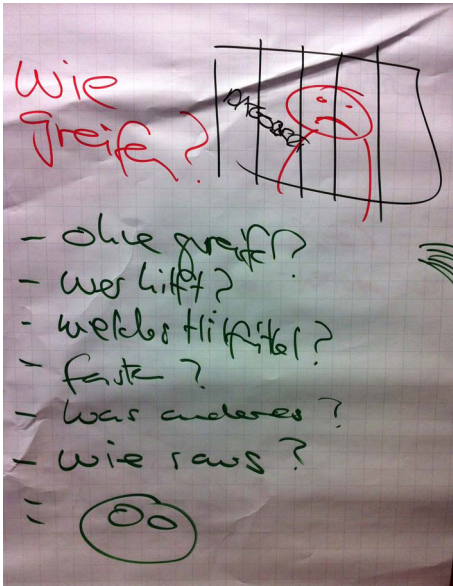 Wie
greifen?
- ohne greifen?
- wer hilft?
- welches Hilfsmittel?
- fasten?
- was anderes?
- wie raus?